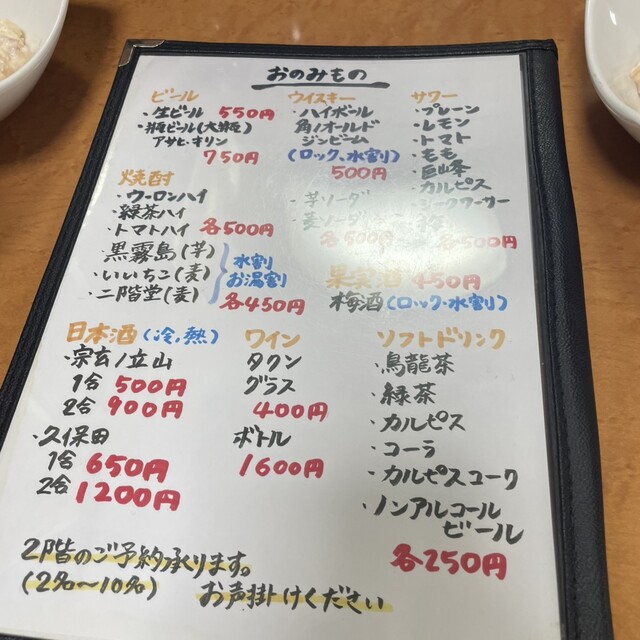 おのみもの
ビール
・生ビール 550円
・瓶ビール(大瓶)
アサヒ・キリン
750円
ウイスキー
・ハイボール
角/オールド
ジンビーム
(ロック、水割)
500円
・芋ソーダ
・麦ソーダ
各500円
サワー
・プレーン
・レモン
・トマト
・もも
・巨峰
・カルピス
・シークワーサー
各500円
焼酎
・ウーロンハイ
・緑茶ハイ
・トマトハイ 各500円
・黒霧島(芋)
・いいちこ(麦)
・二階堂(麦)
水割
お湯割
各450円
果実酒 450円
梅酒(ロック・水割り)
日本酒(冷,熱)
・宗玄/立山
1合 500円
2合 900円
・久保田
1合 650円
2合 1200円
ワイン
タケン
グラス
400円
ボトル
1600円
ソフトドリンク
・烏龍茶
・緑茶
・カルピス
・コーラ
・カルピスコーク
・ノンアルコール
ビール
各250円
2階のご予約承ります。
(2名〜10名) お声掛けください